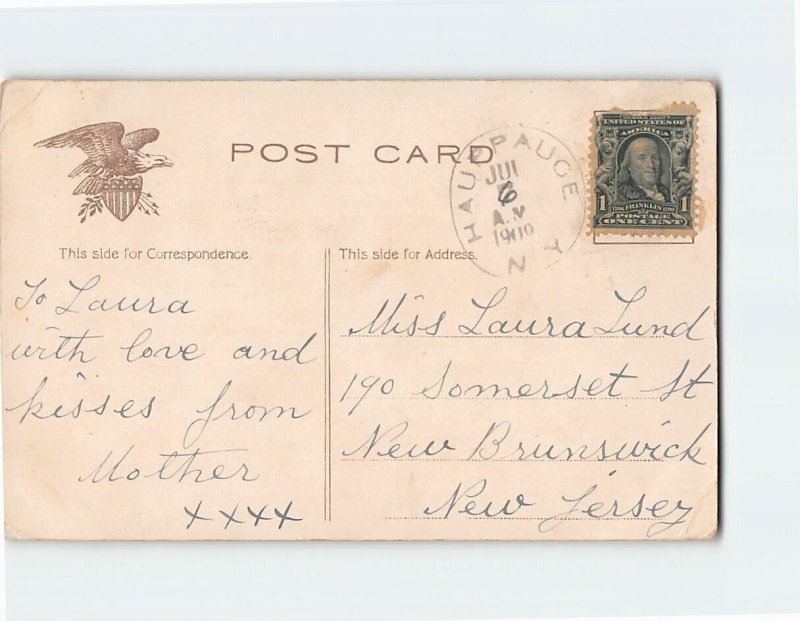 POST CARD
HAUPPAUGE
N Y
A.M
190
SERIES 1902
UNITED STATES OF
AMERICA
1 FRANKLIN 1
POSTAGE
ONE CENT
This side for Correspondence.
To Laura
with love and
kisses from
Mother
xxxx
This side for Address.
Miss Laura Lund
190 Somerset St
New Brunswick
New Jersey